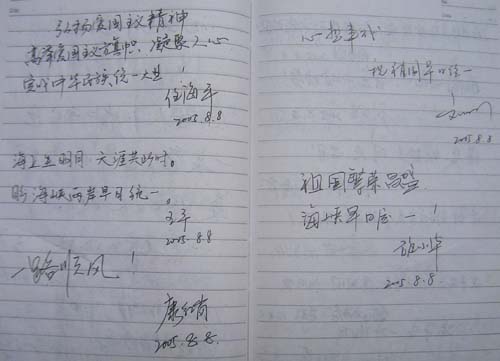 弘扬爱国主义精神
高举爱国主义旗帜、凝聚人心
完成中华民族统一大业！
任海平
2005.8.8
海上生明月 天涯共此时。
盼海峡两岸早日统一。
王军
2005.8.8
一路顺风！
2005.8.8.
心想事成
祝祖国早日统一
2005.8.8
祖国繁荣昌盛
海峡早日统一！
2005.8.8.